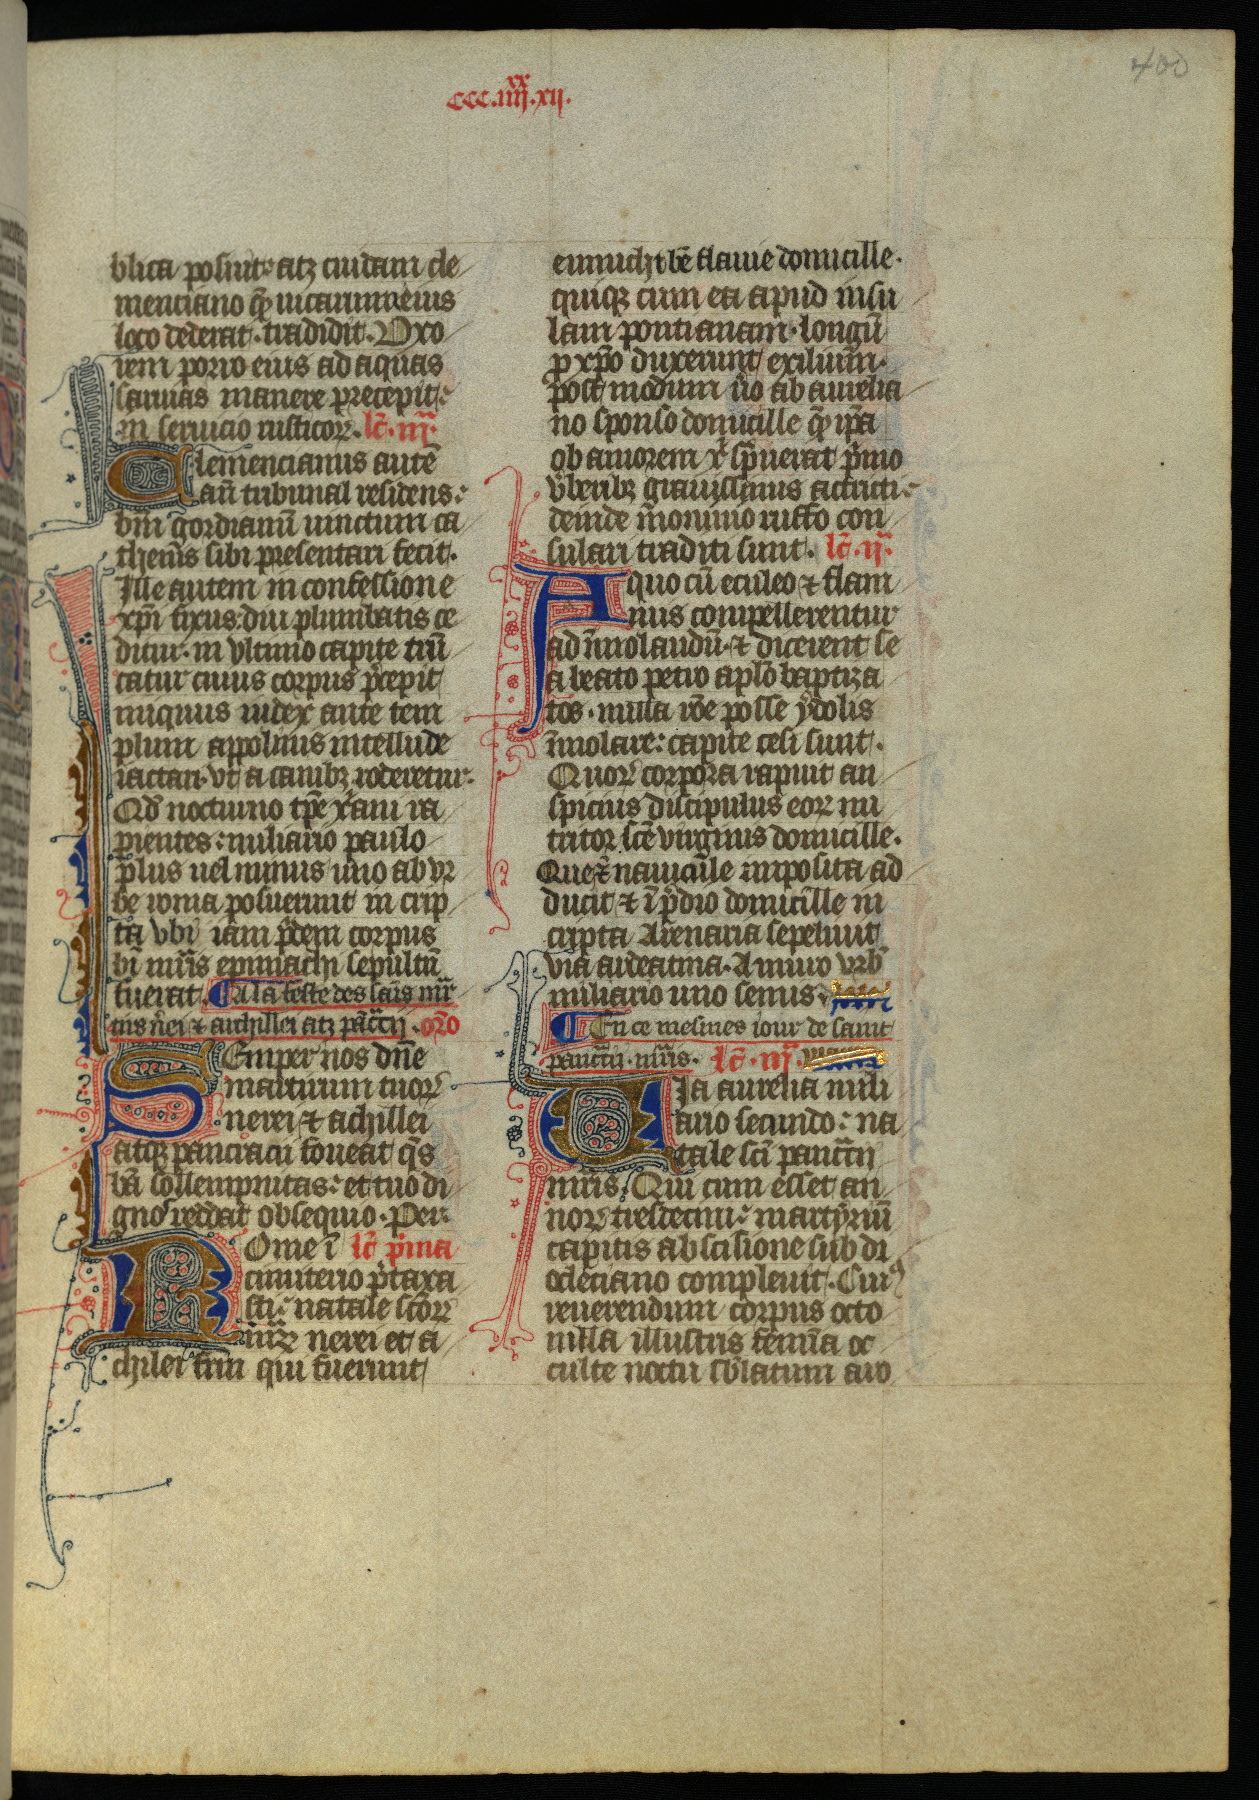 400
ccc.iiij.xx.xij.
blica posuit: atꝫ cuidam cle
menciano qͫ uicarium eius
loco dederat. tradidit. Uxo
rem porro eius ad aquas
saluias manere precepit:
in seruicio rusticoꝝ. lc̄. iij.
Clemencianus autē
an̄ tribunal residens:
bm̄ gordianū uinctum ca
thenis sibi presentari fecit.
Ille autem in confessione
xp̄i fixus. diu plumbatis ce
ditur. in ultimo capite trū
catur cuius corpus p̄cepit
iniquus iudex ante tem
plum appolinis intellude
iactari. vt a canibꝫ roderetur.
Qd̄ nocturno tp̄e xp̄iani ra
pientes: miliario paulo
plus uel minus uno ab vr
be roma posuerunt in crip
ta vbi iam pͥdem corpus
bi mr̄is epimachi sepultū
fuerat. A la feste des sains mr̄
tirs n̄ei ⁊ archillei atꝫ panc̄cij. oro
Semper nos dn̄e
martirum tuoꝝ
nerei ⁊ achillei
atqꝫ panciacii foueat q̄s
bā sollempnitas: et tuo di
gno reddat obsequio. Per.
Rome ī lc̄ p̄ma
cimiterio p̄taxa
sti: natale scōꝝ
mr̄ꝝ nerei et a
chilei fr̄m qui fuerunt
eunuchi bē flauie domicille.
quiqꝫ cum ea apud insu
lam pontianam. longū
p xp̄o duxerunt exilium.
post modum ūo ab aurelia
no sponso domicille qͫ ip̄a
ob amorem xͥ sp̄uerat p̄mo
v̄beribꝫ grauissimus actricti:
deinde memmio ruffo con
sulari traditi sunt. lc̄. ij.
A quo cū eculeo ⁊ flam
mis compellerentur
ad īmolandū. ⁊ dicerent se
a beato petro ap̄lo baptiza
tos. nulla rōe posse ydolis
īmolare: capite cesi sunt.
Quoꝝ corpora rapuit au
spicius discipulus eoꝝ nu
tritor sc̄e virginis domicille.
Que ⁊ nauicule imposita ad
ducit ⁊ ī p̄dio domicille in
cripta Arenaria sepeliuit
via ardeatina. A muro vrb̄
miliario uno semis.
En ce mesmes iour de saint
panc̄cij. mr̄is. lc̄. iij.
Uia aurelia mili
ario secundo: na
tale sci panc̄cij
mr̄is. Qui cum esset an
noꝝ tresdecim: martyriū
capitis abscisione sub di
ocleciano compleuit. Cuiꝰ
reuerendum corpus octo
uilla illustris femīa oc
culte noctu sb̄latum aro